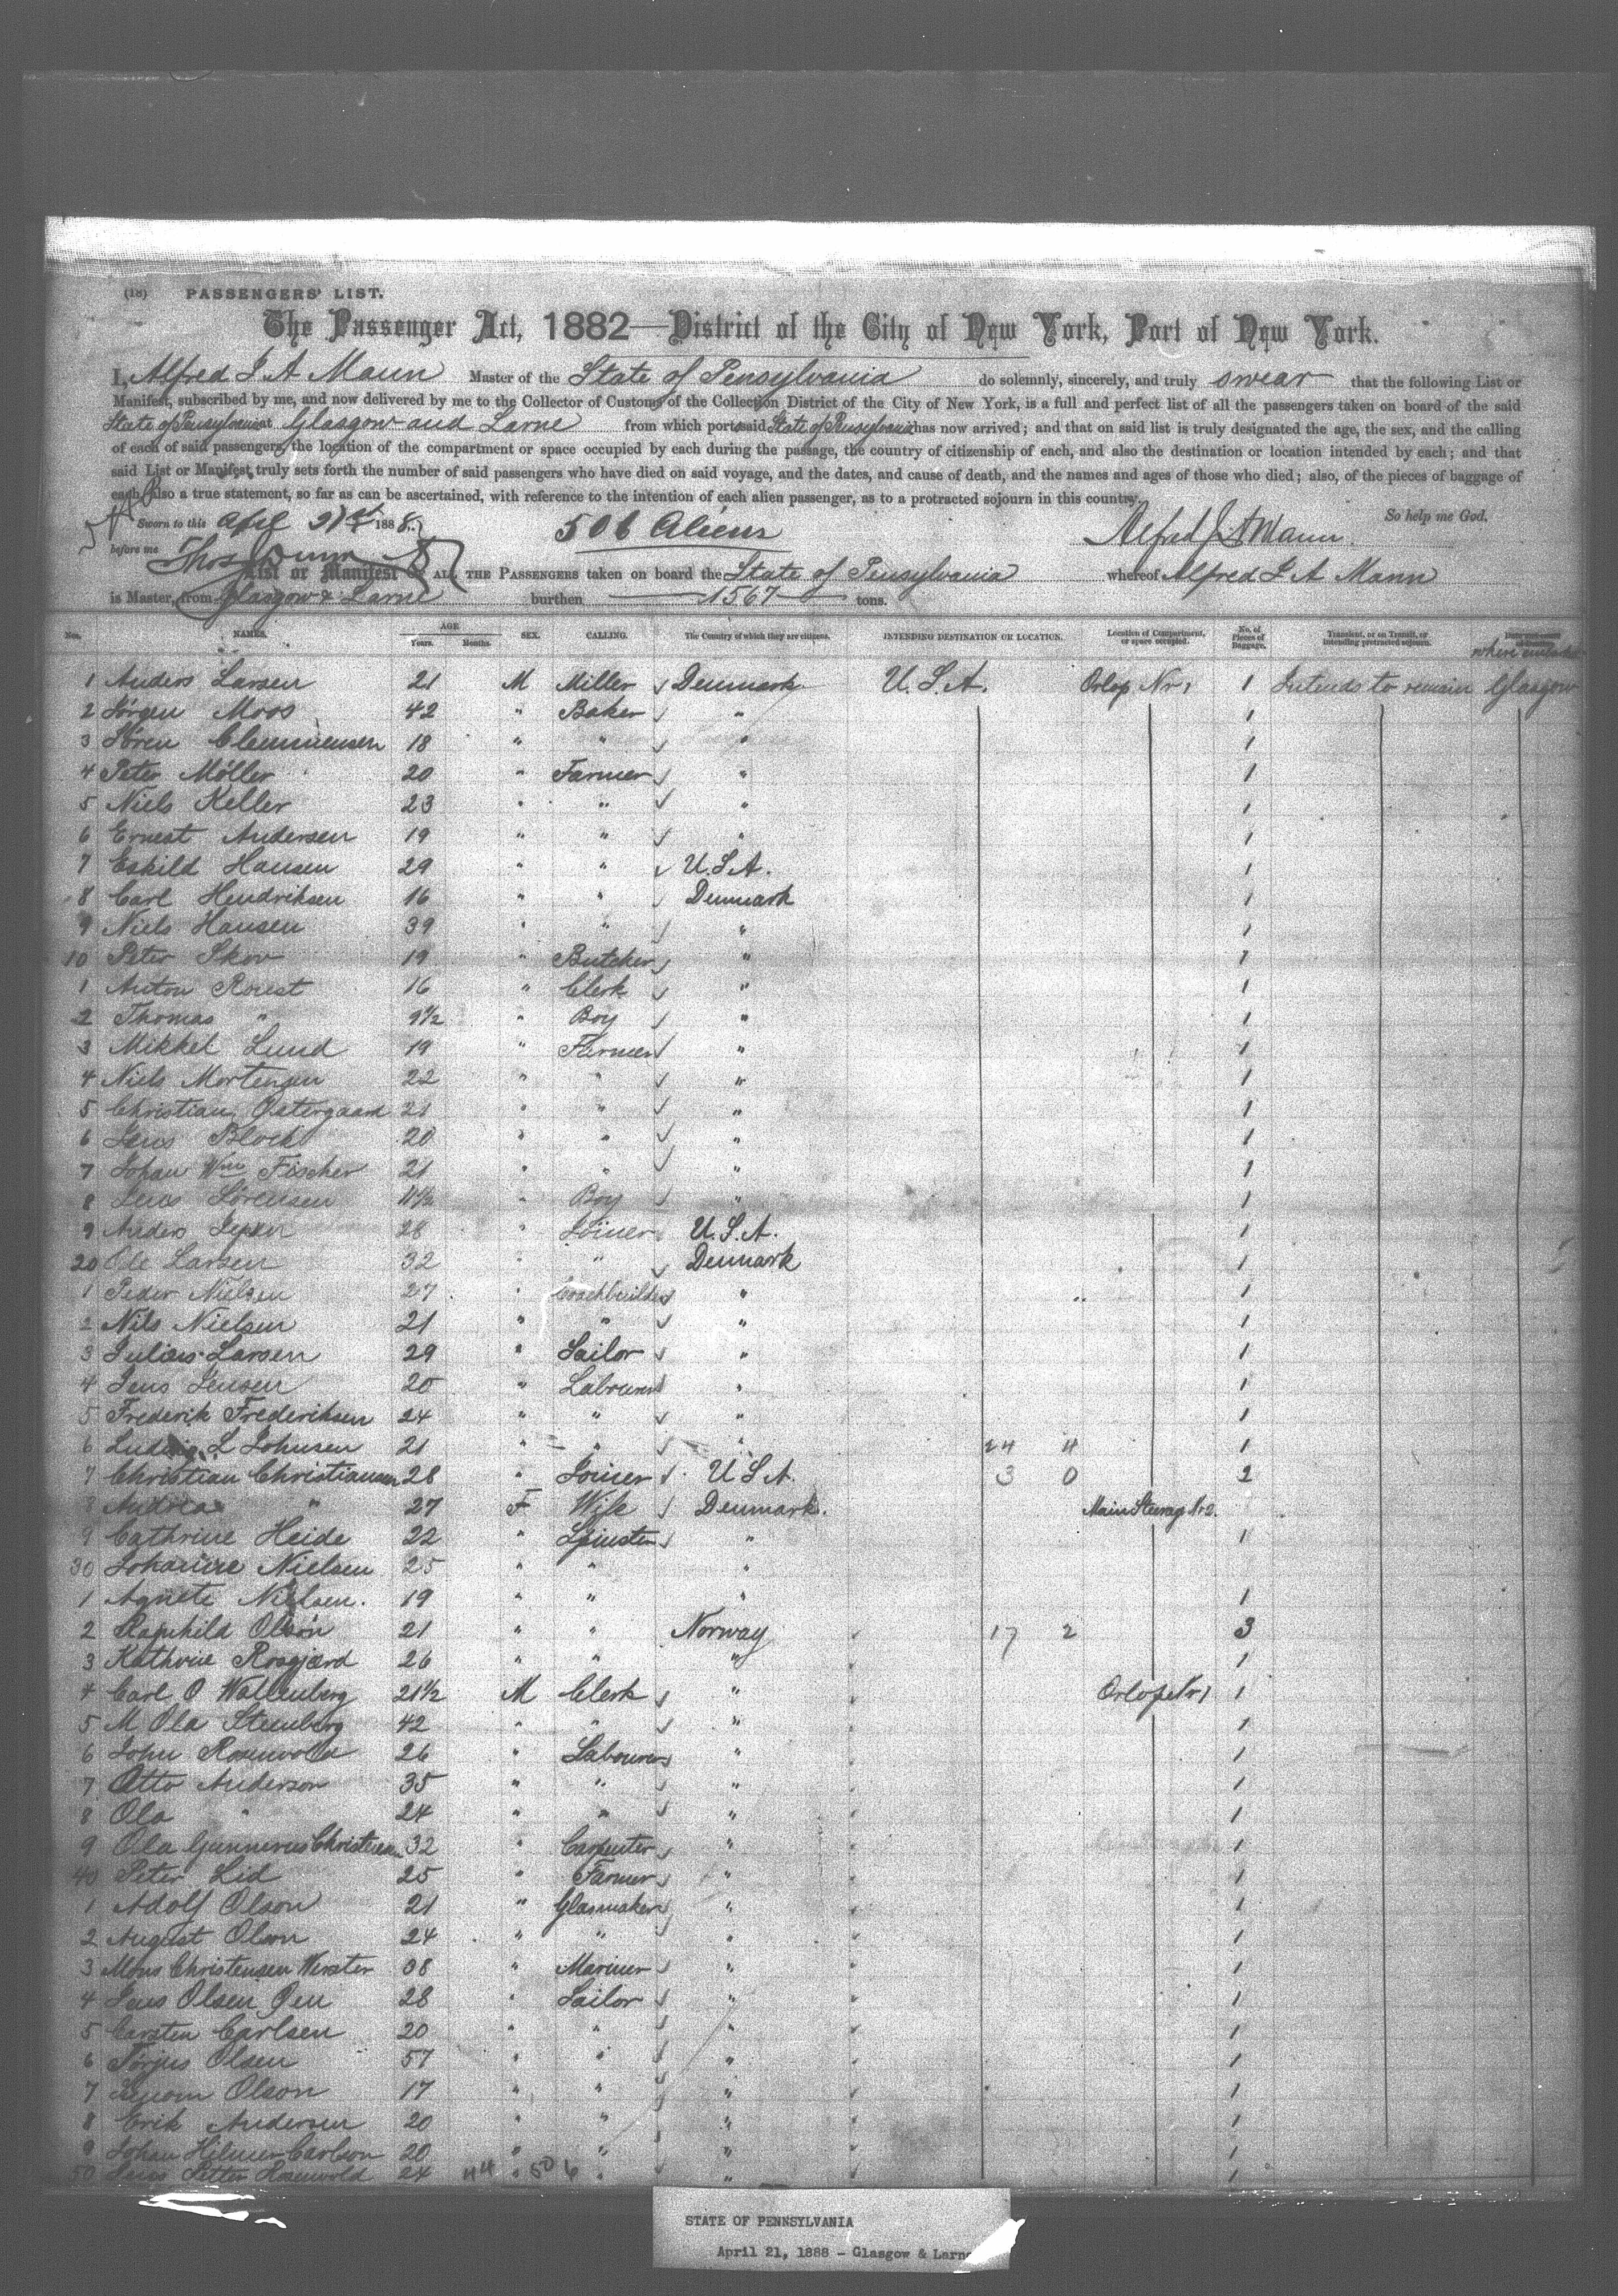 (18) PASSENGERS' LIST.
The Passenger Act, 1882—District of the City of New York, Port of New York.
I, Alfred J. A Mann Master of the State of Pensylvania do solemnly, sincerely, and truly swear that the following List or
Manifest, subscribed by me, and now delivered by me to the Collector of Customs of the Collection District of the City of New York, is a full and perfect list of all the passengers taken on board of the said
State of Pensylvania at Glasgow and Larne from which port said State of Pensylvania has now arrived; and that on said list is truly designated the age, the sex, and the calling
of each of said passengers, the location of the compartment or space occupied by each during the passage, the country of citizenship of each, and also the destination or location intended by each; and that
said List or Manifest truly sets forth the number of said passengers who have died on said voyage, and the dates, and cause of death, and the names and ages of those who died; also, of the pieces of baggage of
each; also a true statement, so far as can be ascertained, with reference to the intention of each alien passenger, as to a protracted sojourn in this country.
So help me God.
Sworn to this April 21st 1888. 506 Aliens Alfred J A Mann.
before me Thos Dunn
List or Manifest OF ALL THE PASSENGERS taken on board the State of Pensylvania whereof Alfred J A Mann
is Master, from Glasgow & Larne burthen 1567 tons.
No. NAMES. AGE Years. Months. SEX. CALLING. The Country of which they are citizens. INTENDING DESTINATION OR LOCATION. Location of Compartment, or space occupied. No. of Pieces of Baggage. Transient, or on Transit, or intending protracted sojourn. where
1 Anders Larsen 21 M Miller Denmark U.S.A. Orlop Nr 1 1 Intends to remain Glasgow
2 Jørgen Moos 42 " Baker " 1
3 Søren Clemmensen 18 " " " 1
4 Peter Møller 20 " Farmer " 1
5 Niels Keller 23 " " " 1
6 Ernest Andersen 19 " " " 1
7 Eskild Hansen 29 " " U.S.A. 1
8 Carl Hendriksen 16 " " Denmark 1
9 Niels Hansen 39 " " " 1
10 Peter Skov 19 " Butcher " 1
1 Anton Roest 16 " Clerk " 1
2 Thomas " 9½ " Boy " 1
3 Mikkel Lund 19 " Farmer " 1
4 Niels Mortensen 22 " " " 1
5 Christian Østergaard 21 " " " 1
6 Jens Block 20 " " " 1
7 Johan Wm Fischer 21 " " " 1
8 Jens Sørensen 11½ " Boy " 1
9 Anders 28 " Joiner U.S.A. 1
20 Ole Larsen 32 " " Denmark 1
1 Peder Nielsen 27 " Coachbuilder " 1
2 Nils Nielsen 21 " " " 1
3 Julius Larsen 29 " Sailor " 1
4 Jens Jensen 20 " Labourer " 1
5 Frederik Frederiksen 24 " " " 1
6 Ludvig L Johnsen 21 " " " 24 4 1
7 Christian Christiansen 28 " Joiner U S A. 3 0 2
8 Andrea " 27 F Wife Denmark. Main Steerage Nr 2.
9 Cathrine Heide 22 " Spinster " 1
30 Johanne Nielsen 25 " " "
1 Agnete Nielsen. 19 " " " 1
2 Ragnhild Olson 21 " " Norway 17 2 3
3 Kathrine Rosgjærd 26 " " " 1
4 Carl O Wallenberg 21½ M Clerk " Orlop Nr 1 1
5 M Ola Steenberg 42 " " " 1
6 John Rosenvold 26 " Labourer " 1
7 Otto Anderson 35 " " " 1
8 Ola " 24 " " " 1
9 Ola Gunnerus Christensen 32 " Carpenter " 1
40 Peter Lid 25 " Farmer " 1
1 Adolf Olson 21 " Glasmaker " 1
2 August Olson 24 " " " 1
3 Mons Christensen 08 " Mariner " 1
4 Jens Olsen 28 " Sailor " 1
5 Carsten Carlsen 20 " " " 1
6 Torjus Olsen 57 " " " 1
7 Olson 17 " " " 1
8 Erik Andersen 20 " " " 1
9 Johan Hilmer Carlson 20 " " " 1
50 Jens Rosenvold 24 44 " 506 " " 1
STATE OF PENNSYLVANIA
April 21, 1888 - Glasgow & Larne